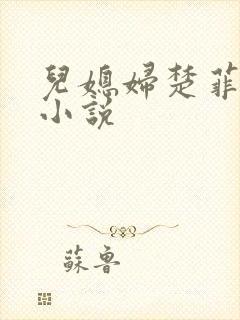 兒媳婦楚菲
小說
蘇魯